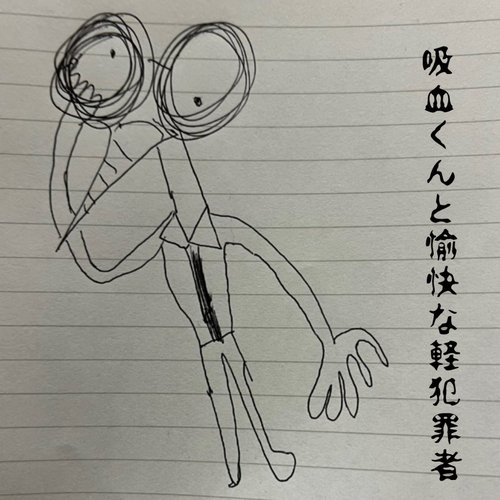 吸血くんと愉快な軽犯罪者